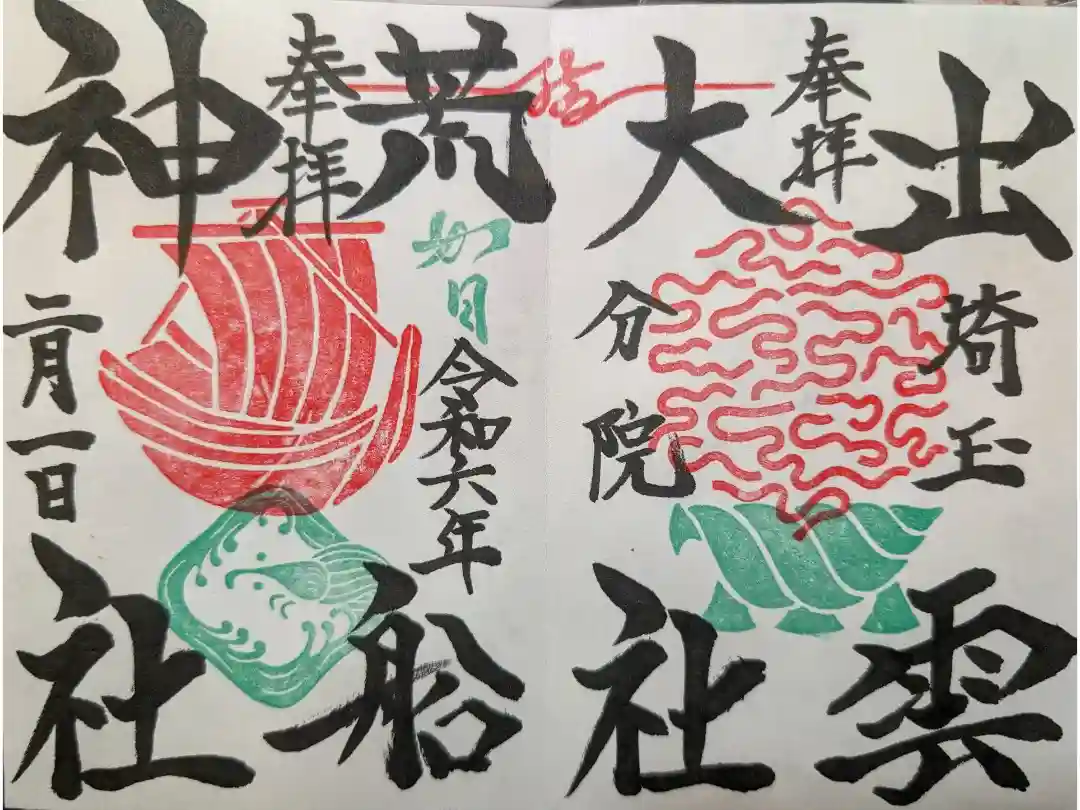 奉拝
出雲
大社
埼玉
分院
奉拝
荒船
神社
如月
令和六年
二月一日